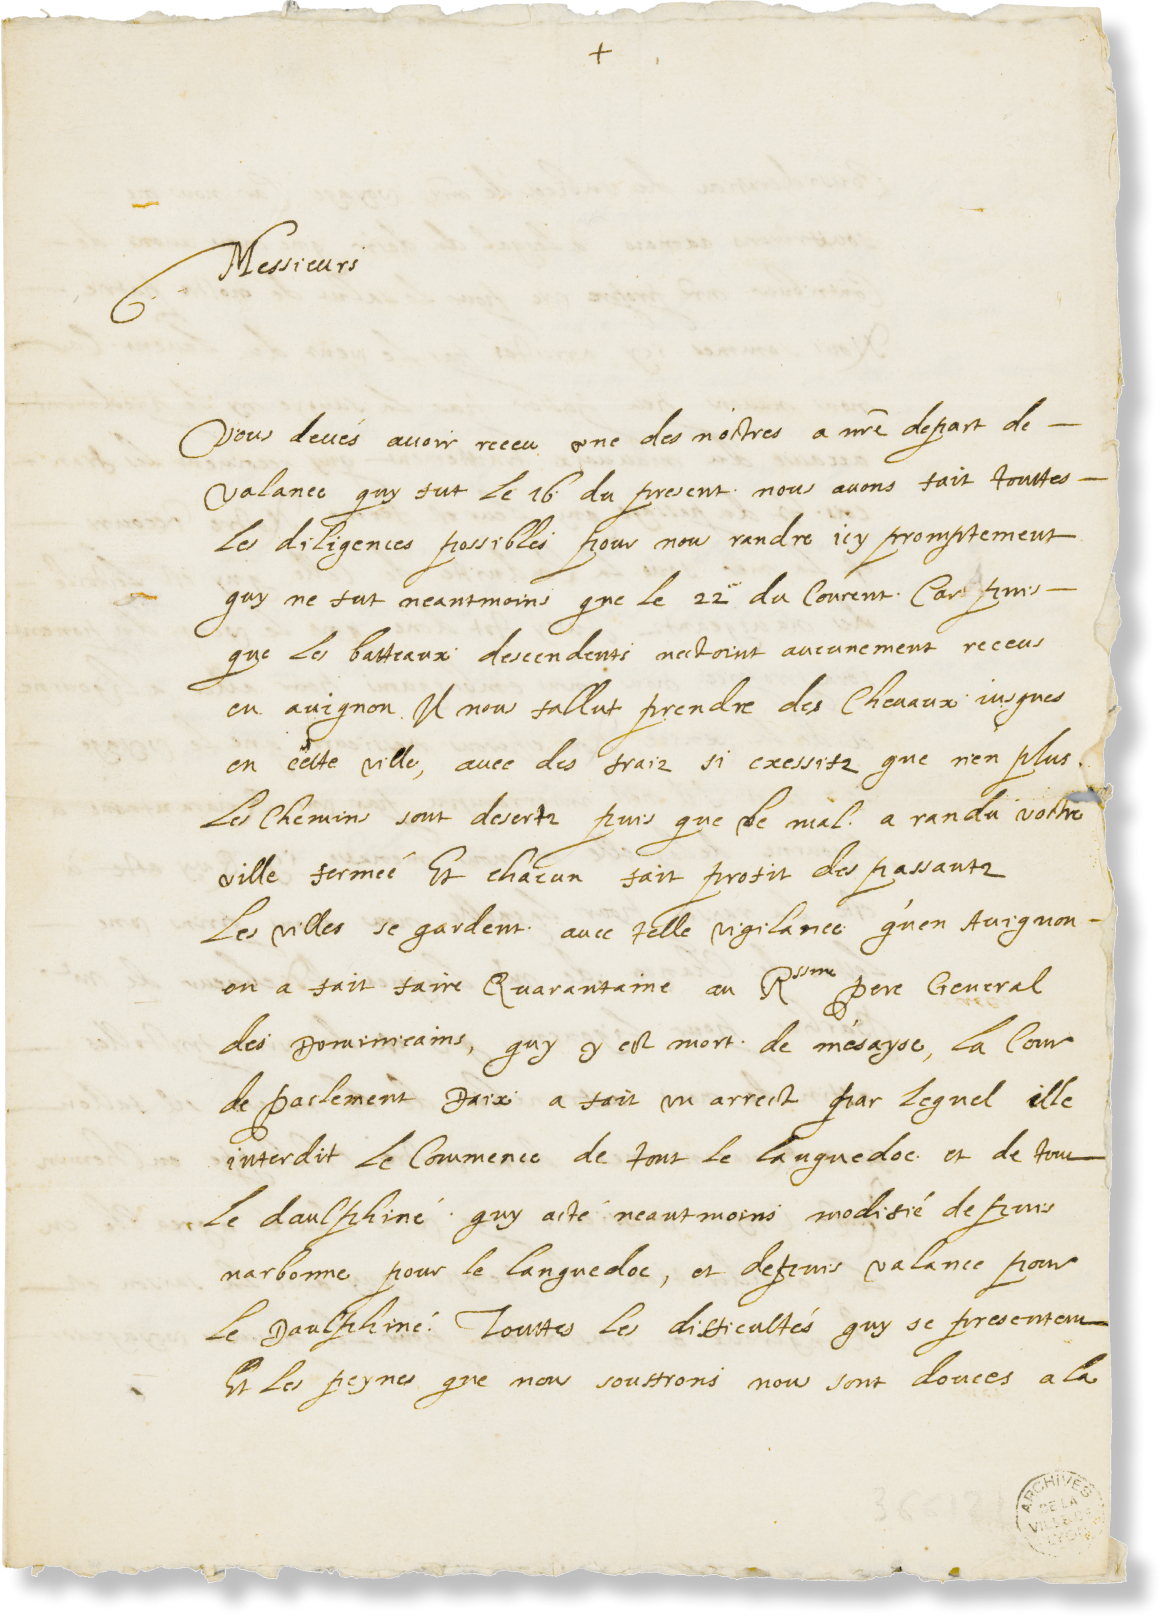 +
Messieurs
Vous deués auoir receu vne des nostres a nre depart de
Valance quy fut le 16 du present. nous auons fait touttes
les diligences possibles pour nous randre icy promptement
quy ne fut neantmoins que le 22e du Courent. Car puis
que les batteaux descendents nestoint aucunement receus
en auignon Il nous fallut prendre des Cheuaux iusques
en ceste ville, auec des fraiz si exessifz que rien plus.
Les Chemins sont desertz puis que le mal. a randu vostre
ville fermeé Et chacun fait profit des passantz
Les villes se gardent. auec telle vigilance qu'en Auignon
on a fait faire Quarantaine au Rssme pere General
des Dominicains, quy y est mort. de mésayse, La Cour
de parlement Daix a fait vn arrest par lequel ille
interdit le Commerce de tout le languedoc et de tout
le daulphiné. quy a esté neantmoins modifié depuis
narbonne pour le languedoc, et depuis valance pour
le Daulphiné. Touttes les difficultés quy se presentent
Et les peynes que nous souffrons nous sont douces a la
ARCHIVES
DE LA
VILLE DE
LYON